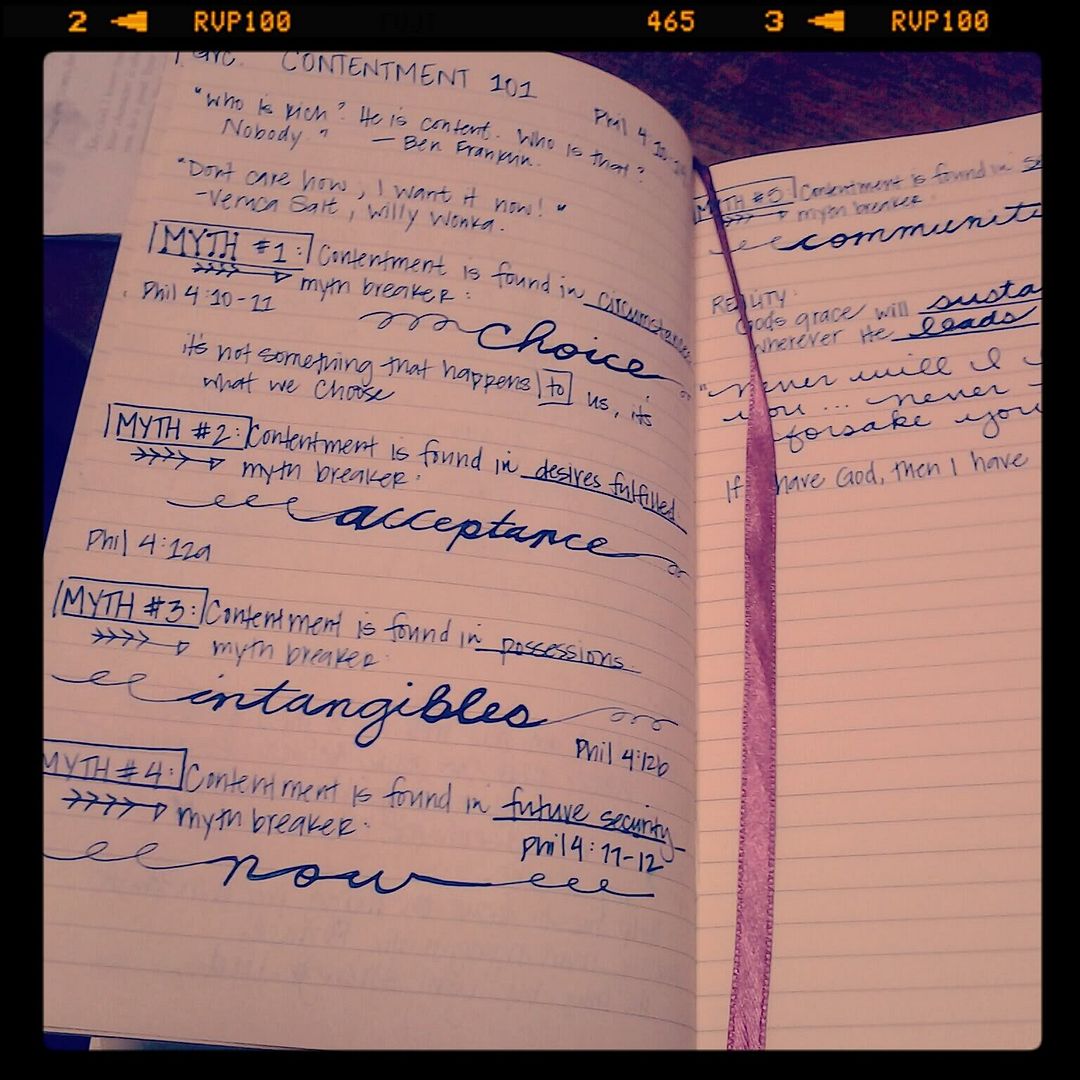 2 RVP100 465 3 RVP100
CONTENTMENT 101
Phil 4:10-
"Who is rich? He is content. Who is that?
Nobody." — Ben Franklin.
"Don't care how, I want it now!"
-Veruca Salt, Willy Wonka.
MYTH #1: Contentment is found in circumstances
myth breaker:
Phil 4:10-11
choice
it's not something that happens to us, it's
what we choose
MYTH #2: Contentment is found in desires fulfilled
myth breaker:
acceptance
Phil 4:12a
MYTH #3: Contentment is found in possessions.
myth breaker:
intangibles
Phil 4:12b
MYTH #4: Contentment is found in future security
myth breaker:
Phil 4:11-12
now
MYTH #5: Contentment is found in
myth breaker
communit
REALITY:
Gods grace will susta
wherever He leads
"never will I
you... never
forsake you
If have God, then I have